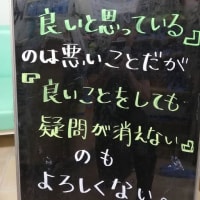 良いと思っている』
のは悪いことだが
『良いことをしても
疑問が消えない』
のも
よろしくない。